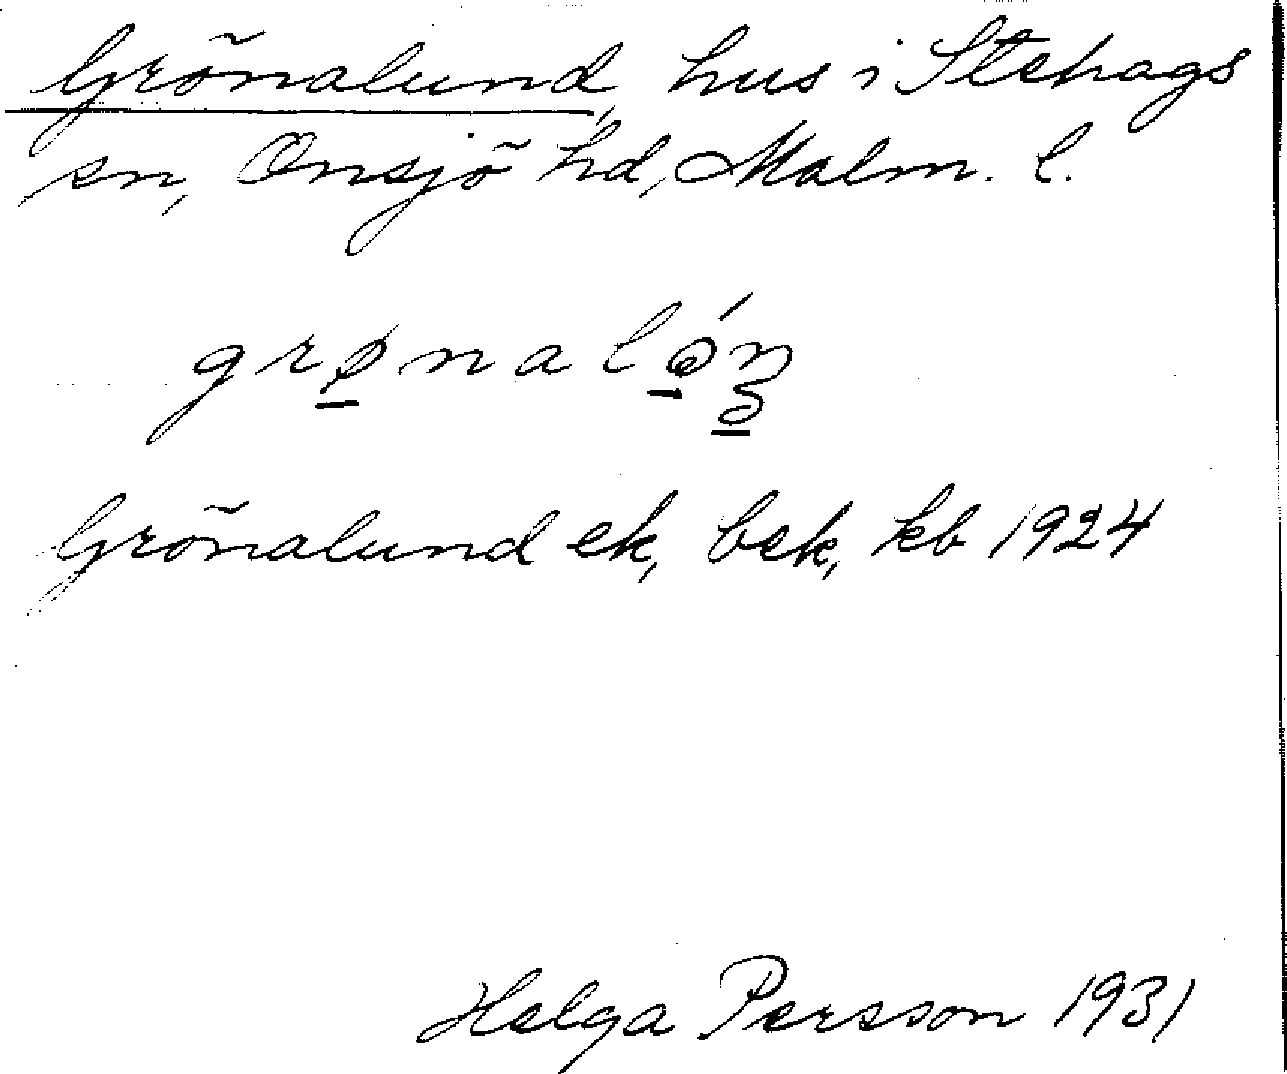 Grönalund, hus i Stehags
sn, Onsjö hd, Malm. l.
Grönalund ek, bek, kb 1924
Helga Persson 1931